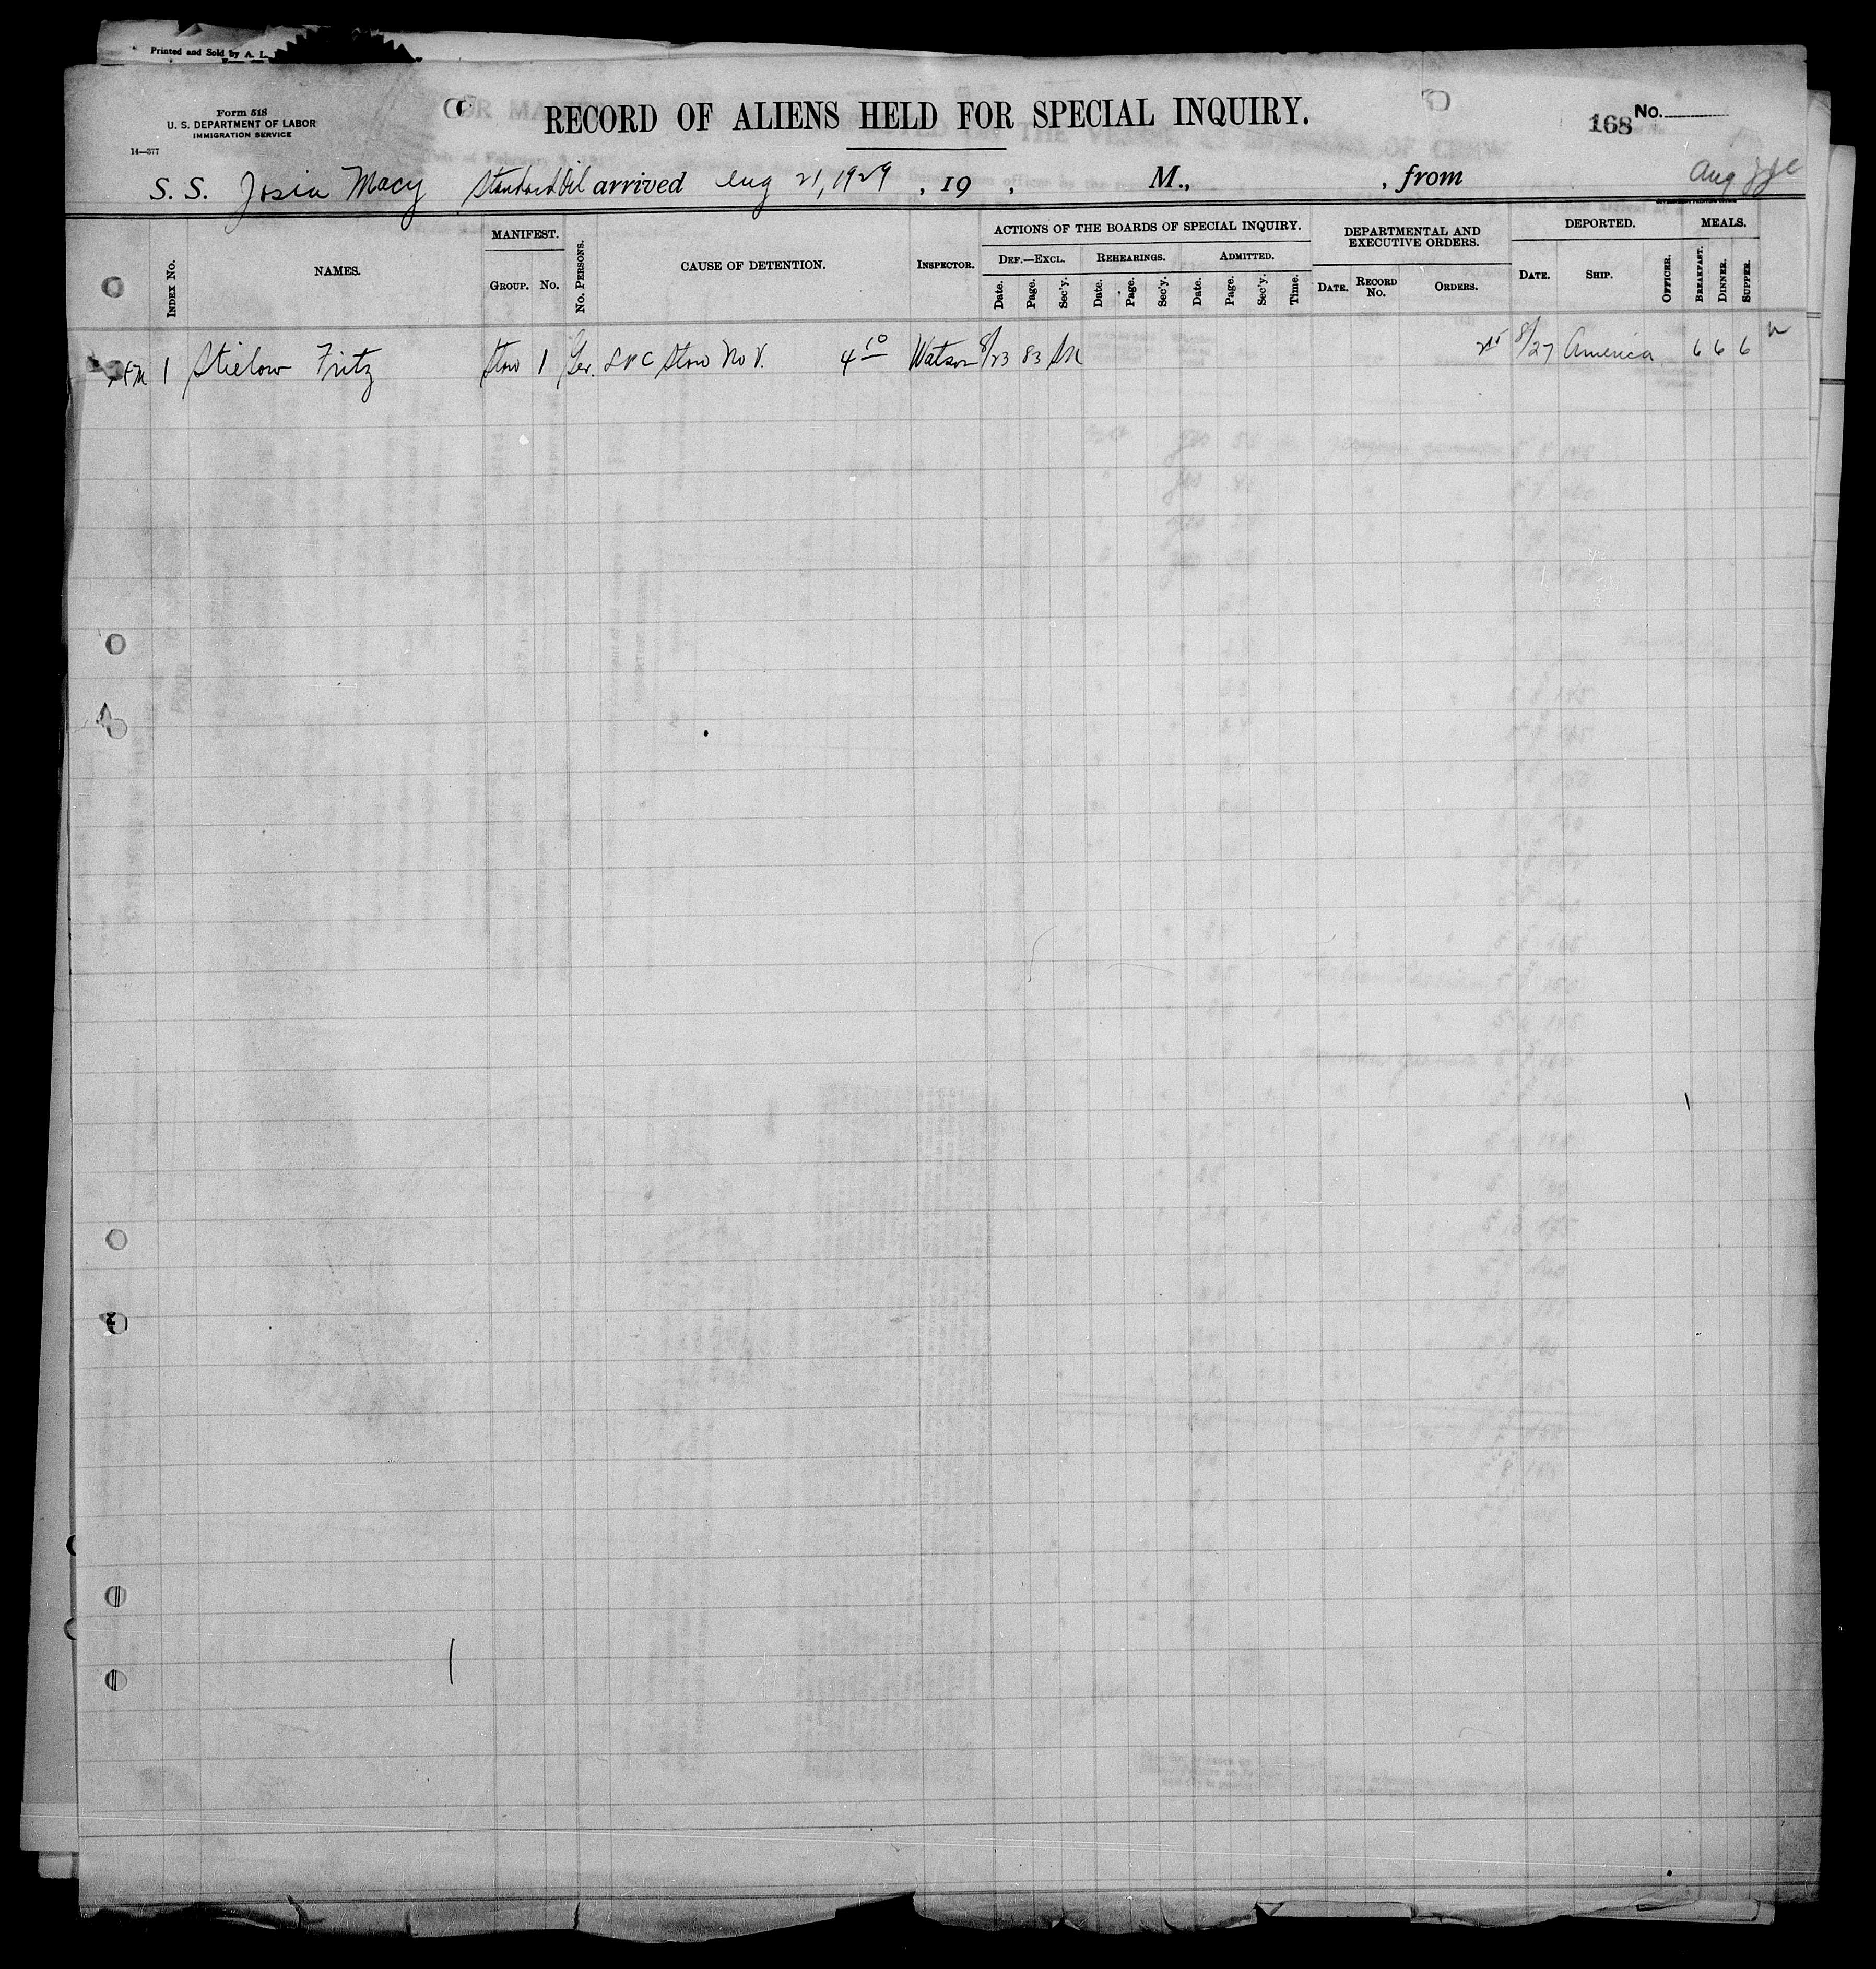 Printed and Sold by A. L.
Form 518
U. S. DEPARTMENT OF LABOR
IMMIGRATION SERVICE
14—377
RECORD OF ALIENS HELD FOR SPECIAL INQUIRY.
168 No.
S. S. Josia Macy Standard Oil arrived Aug 21, 1929, 19 , M., , from Aug
MANIFEST.
ACTIONS OF THE BOARDS OF SPECIAL INQUIRY.
DEPARTMENTAL AND EXECUTIVE ORDERS.
DEPORTED.
MEALS.
DEF.—EXCL. REHEARINGS. ADMITTED.
INDEX No. NAMES. GROUP. No. No. PERSONS. CAUSE OF DETENTION. INSPECTOR. Date. Page. Sec'y. Date. Page. Sec'y. Date. Page. Sec'y. Time. DATE. RECORD No. ORDERS. DATE. SHIP. OFFICER. BREAKFAST. DINNER. SUPPER.
1 Stielow Fritz Stow 1 Ger. L P C Stow No V. 4 10 Watson 8/23 83 8/27 America 6 6 6